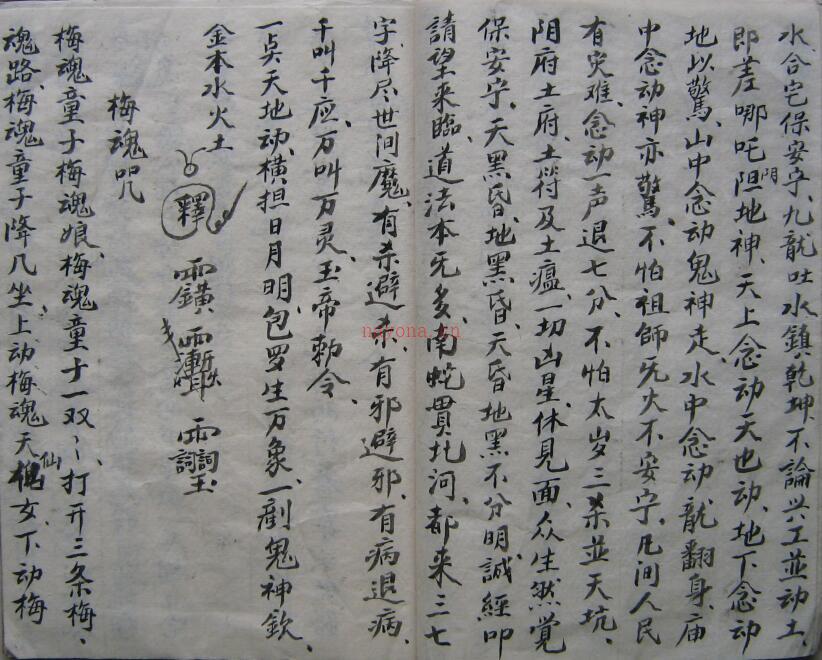 水、合宅保安宁、九龍吐水鎮乾坤、不論兴工並动土、
即差哪吒阻地神门、天上念动天也动、地下念动
地以驚、山中念动鬼神走、水中念动龍翻身、庙
中念动神亦驚、不怕祖師旡火不安宁、凡间人民
有灾难、念动一声退七分、不怕太岁三杀並天坑、
阴府土府、土符及土瘟、一切凶星、休見面、众生然覚
保安宁、天黑昏、地黑昏、天昏地黑不分明、誠經叩
請望来臨、道法本旡多、南蛇貫北河、都来三七
字、降尽世间魔、有杀避杀、有邪避邪、有病退病、
千叫千应、万叫万灵、玉帝勅令、
一点天地动、横担日月明、包罗生万象、一劄鬼神欽、
金木水火土
釋
梅魂咒
梅魂童子梅魂娘、梅魂童子一双丶、打开三条梅、
魂路、梅魂童子降几坐、上动梅魂天仙女、下动梅
nayona.cn